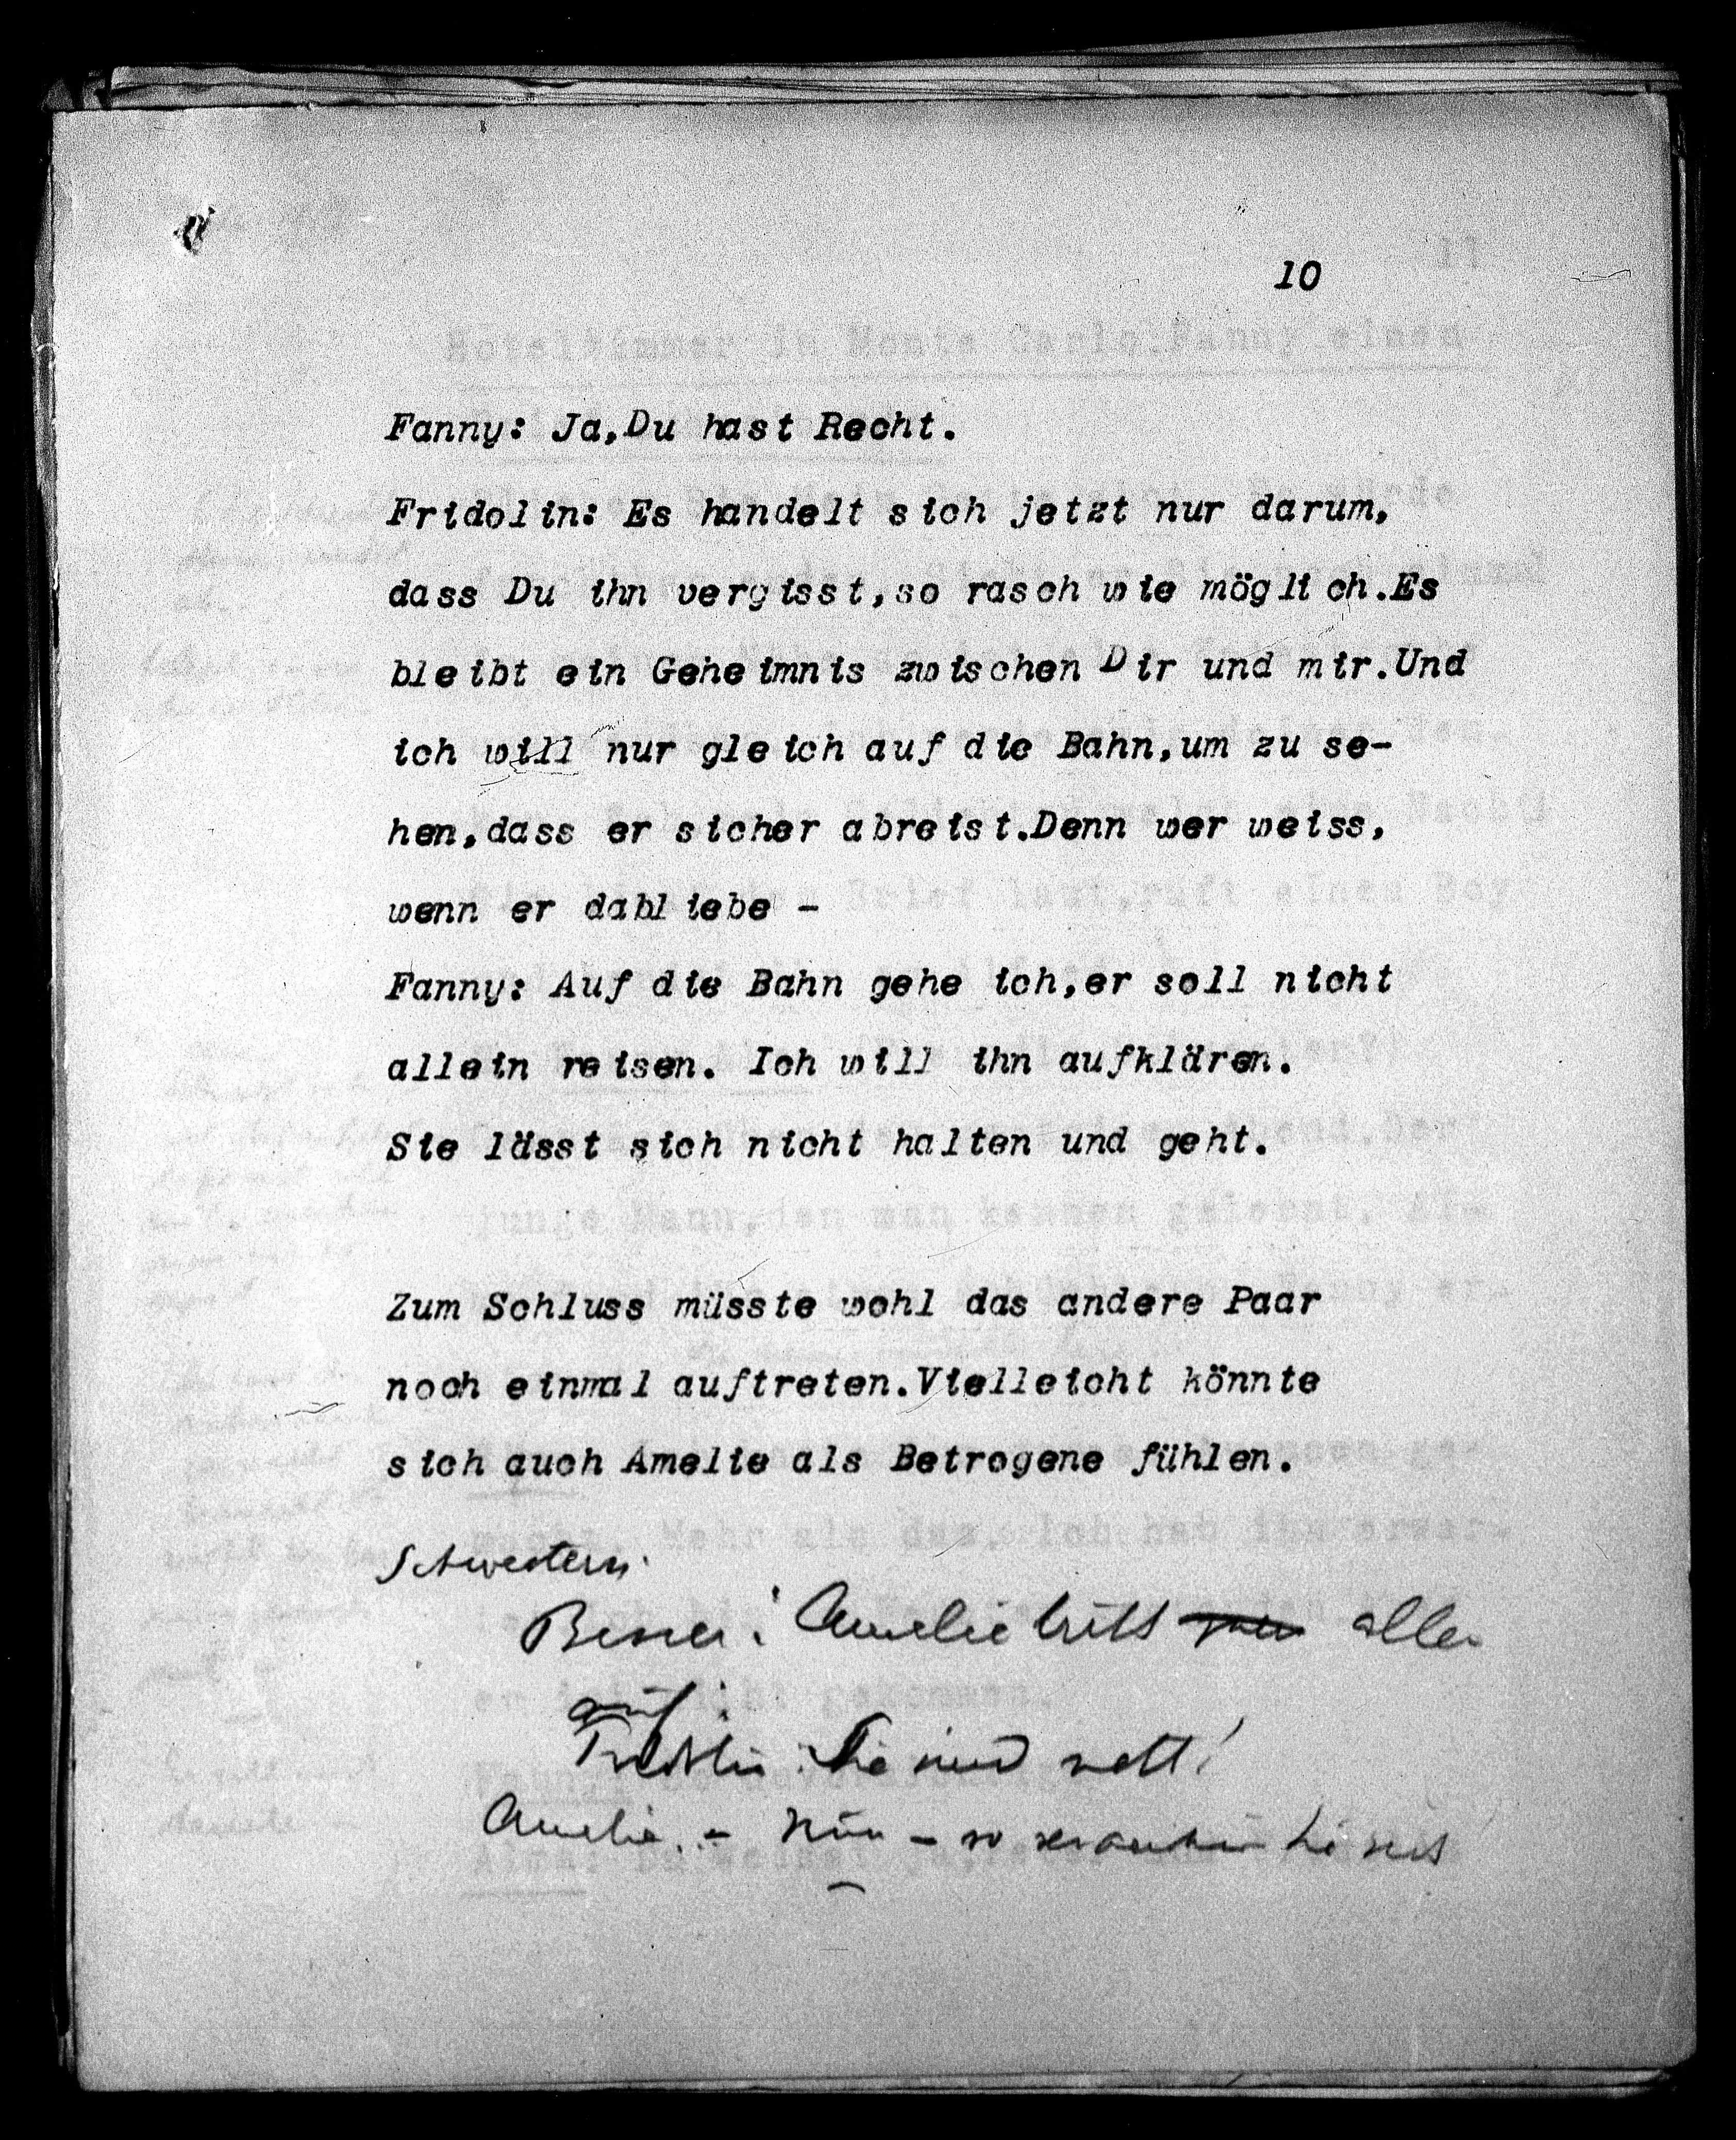 10
Fanny: Ja,Du hast Recht.
Fridolin: Es handelt sich jetzt nur darum,
dass Du ihn vergisst,so rasch wie möglich.Es
bleibt ein Geheimnis zwischen Dir und mir.Und
ich will nur gleich auf die Bahn,um zu se-
hen,dass er sicher abreist.Denn wer weiss,
wenn er dabliebe -
Fanny: Auf die Bahn gehe ich,er soll nicht
allein reisen. Ich will ihn aufklären.
Sie lässt sich nicht halten und geht.
Zum Schluss müsste wohl das andere Paar
noch einmal auftreten.Vielleicht könnte
sich auch Amelie als Betrogene fühlen.
Schwestern.
Besser: Amelie tritt allein
auf.
Fridolin: Sie sind nett!
Amelie. - Nun - so